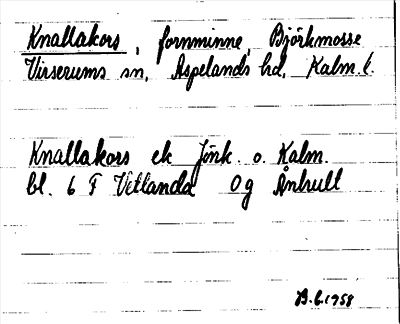 Knallakors, fornminne, Björkmosse
Virserums sn, Aspelands hd, Kalm. l.
Knallakors ek Jönk. o. Kalm.
bl. 6 F Vetlanda 0g Ånhult
B.G. 1958